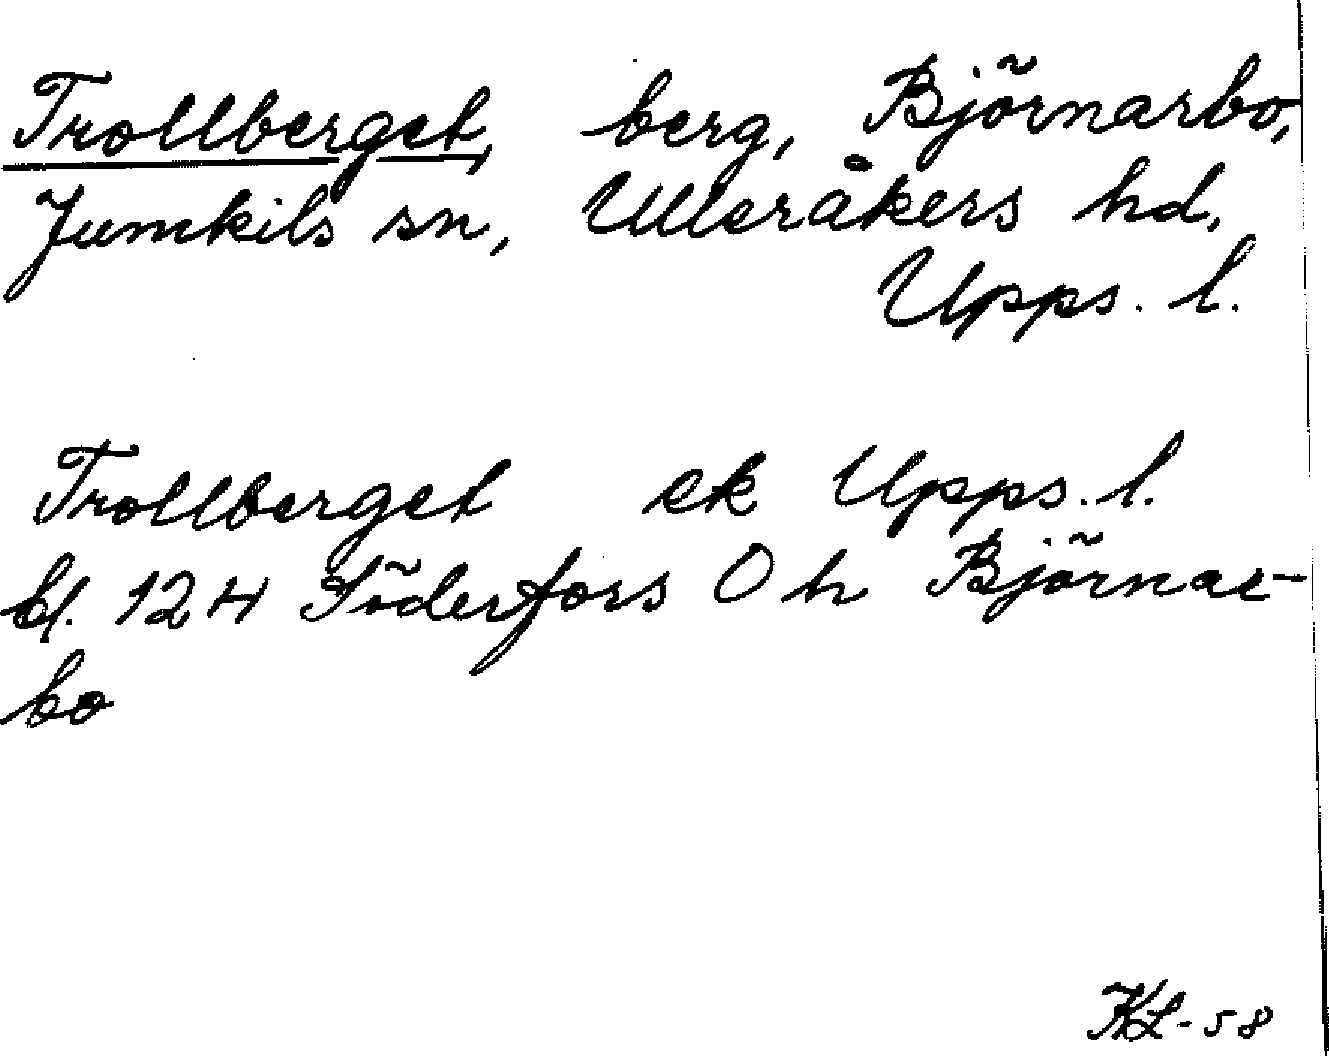 Trollberget, berg, Björnarbo,
Jumkils sn, Ulleråkers hd,
Upps. l.
Trollberget ek Upps. l.
bl. 124 Söderfors O h Björnar-
bo
KL-58